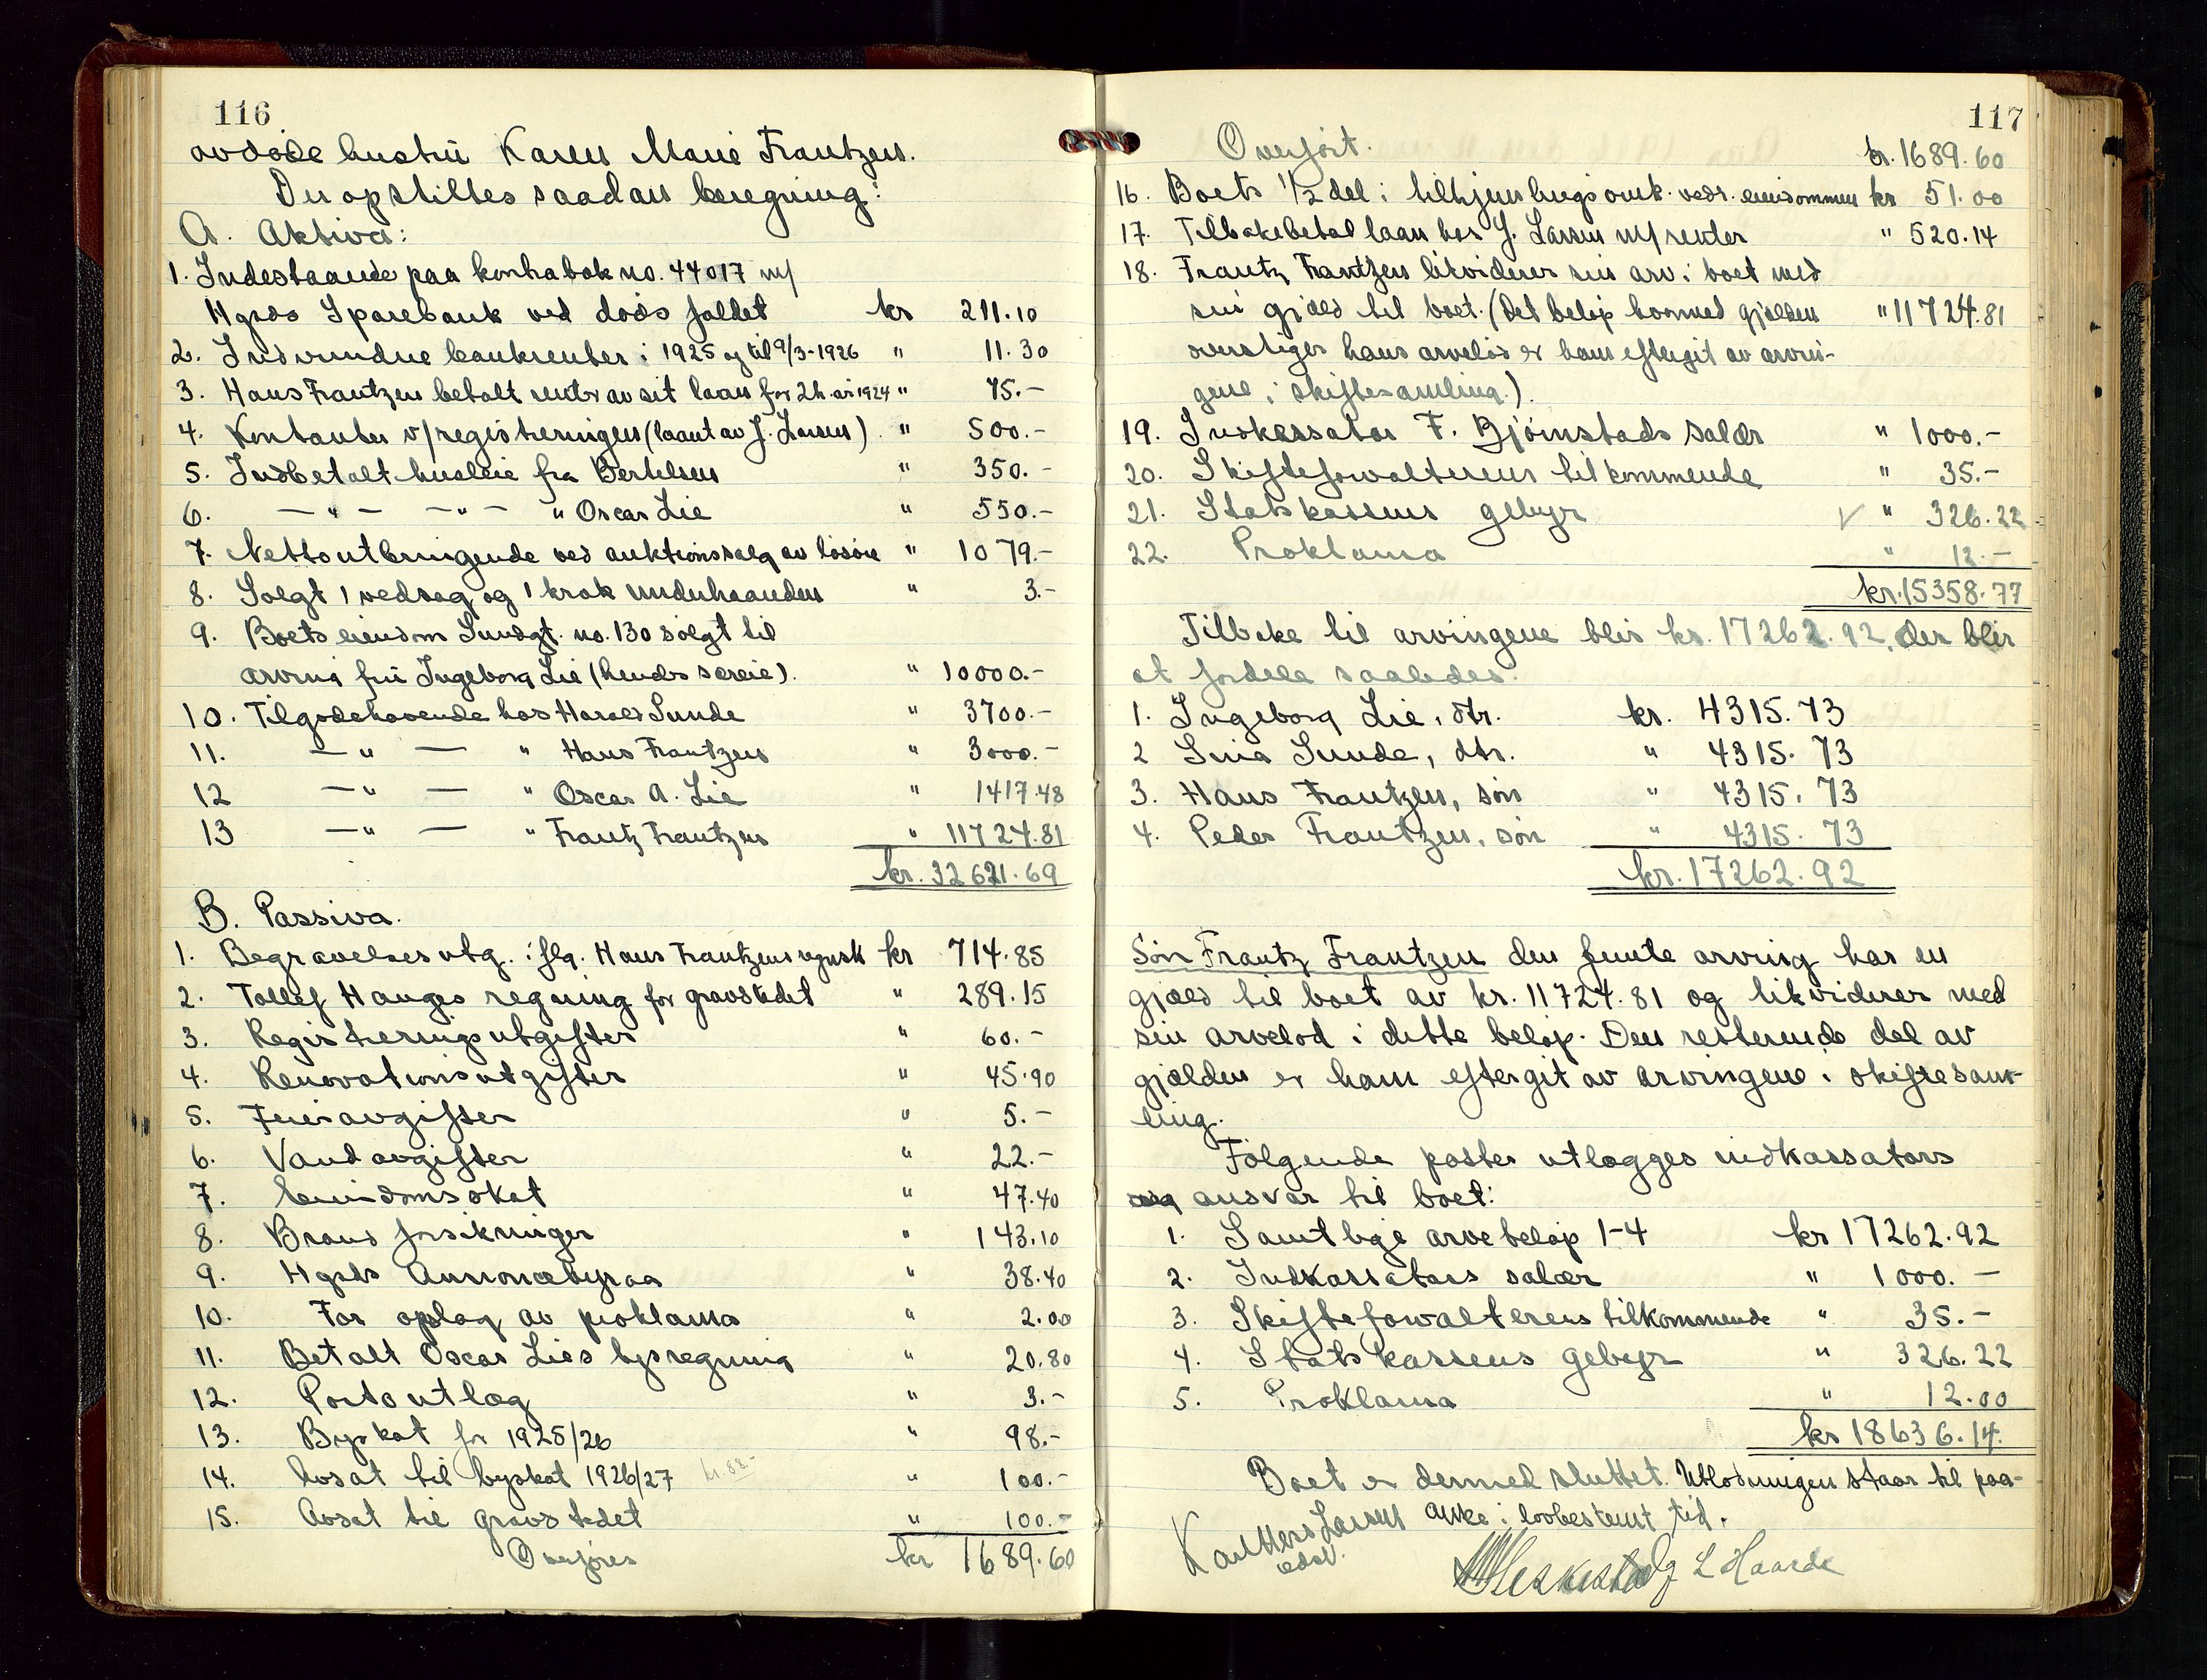 116
avdøde hustru Karen Marie Frantzen.
Der opstilles saadan beregning:
A. Aktiva:
1. Indestaaende paa kontrabok no. 44017 m/
Hgsds Sparebank ved dødsfaldet kr 211.10
2. Indvundne bankrenter i 1925 og til 9/3-1926 " 11.30
3. Hans Frantzen betalt renter av sit laan for 2h.aar 1924 " 75.-
4. Kontanter v/registreringen (laant av J. Larsen) " 500.-
5. Indbetalt husleie fra Bertelsen " 350.-
6. -"- -"- " Oscar Lie " 550.-
7. Netto utbringende ved auktionssalg av løsøre " 1079.-
8. Solgt 1 vedsag og 1 krak underhaanden " 3.-
9. Boets eiendom Sundgt. no. 130 solgt til
arving fru Ingeborg Lie (hendes særeie). " 10000.-
10. Tilgodehavende hos Harald Sunde " 3700.-
11. -"- " Hans Frantzen " 3000.-
12 -"- " Oscar A. Lie " 1417.48
13 -"- " Frantz Frantzen " 11724.81
kr. 32621.69
B. Passiva.
1. Begravelsesutg. i flg. Hans Frantzens regnsk kr 714.85
2. Tollef Hauges regning for gravstedet " 289.15
3. Registreringsutgifter " 60.-
4. Renovationsutgifter " 45.90
5. Feieravgifter " 5.-
6. Vandavgifter " 22.-
7. Eiendomsskat " 47.40
8. Brandforsikringer " 143.10
9. Hgsds Annoncebyraa " 38.40
10. For oplag av proklama " 2.00
11. Betalt Oscar Lies lysregning " 20.80
12. Porto utlæg " 3.-
13. Byskat for 1925/26 " 98.-
14. Avsat til byskat 1926/27 kr. 88.- " 100.-
15. Avsat til gravstedet " 100.-
Overføres kr 1689.60
117
Overført. kr. 1689.60
16. Boets 1/2 del i tilhjemlingsomk. vedr. eiendommen kr 51.00
17. Tilbakebetal laan hos J. Larsen m/renter " 520.14
18. Frantz Frantzen likviderer sin arv i boet med
sin gjæld til boet. (Det beløp hvormed gjælden " 11724.81
overstiger hans arvelod er ham eftergit av arvin-
gene i skiftesamling.)
19. Inkassator F. Bjørnstads salær " 1000.-
20. Skifteforvalterens tilkommende " 35.-
21. Statskassens gebyr √ " 326.22
22. Proklama " 12.-
kr. 15358.77
Tilbake til arvingene blir kr. 17262.92, der blir
at fordele saaledes:
1. Ingeborg Lie, dtr. kr. 4315.73
2 Sina Sunde, dtr. " 4315.73
3. Hans Frantzen, søn " 4315.73
4. Peder Frantzen, søn " 4315.73
kr. 17262.92
Søn Frantz Frantzen den femte arving har en
gjæld til boet av kr. 11724.81 og likviderer med
sin arvelod i dette beløp. Den resterende del av
gjælden er ham eftergit av arvingene i skiftesam-
ling.
Følgende poster utlægges indkassators
ansvar til boet:
1. Samtlige arvebeløp 1-4 kr 17262.92
2. Indkassators salær " 1000.-
3. Skifteforvalterens tilkommende " 35.-
4. Statskassens gebyr " 326.22
5. Proklama " 12.00
kr 18636.14.
Boet er dermed sluttet. Utlodningen staar til paa-
anke i lovbestemt tid.
Larsen
edsv.
L Haarde